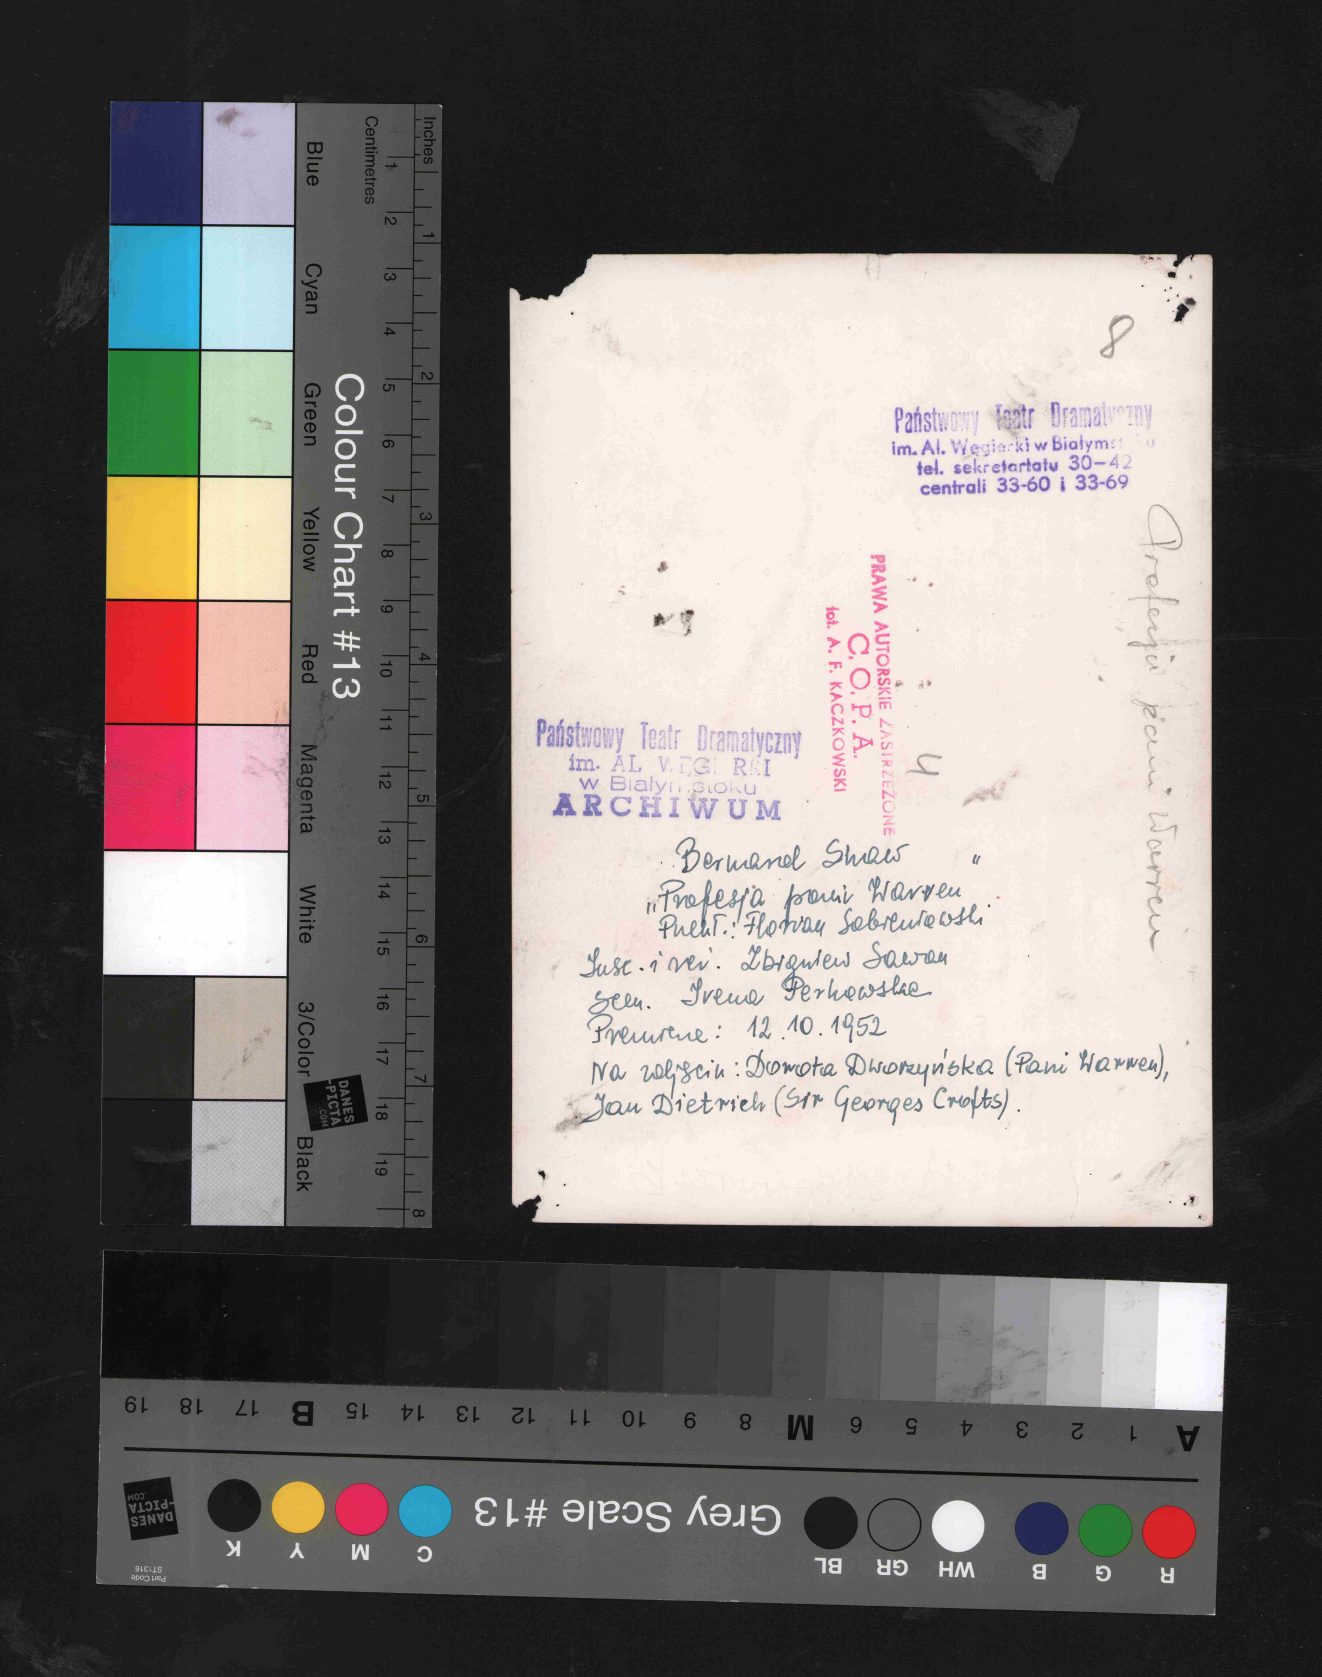 Inches
Centimetres
1 2 3 4 5 6 7 8 9 10 11 12 13 14 15 16 17 18 19
1 2 3 4 5 6 7 8
Colour Chart #13
Blue
Cyan
Green
Yellow
Red
Magenta
White
3/Color
Black
DANES
-PICTA
.COM
8
Państwowy Teatr Dramatyczny
im. Al. Węgierki w Białyms
tel. sekretariatu 30-42
centrali 33-60 i 33-69
Profesja pani Warren
PRAWA AUTORSKIE ZASTRZEŻONE
C. O. P. A.
fot. A. F. KACZKOWSKI
4
Państwowy Teatr Dramatyczny
im. AL WĘGI RKI
w Białymstoku
ARCHIWUM
Bernard Shaw
„Profesja pani Warren"
Przekł.: Florian Sobieniowski
Insc. i reż. Zbigniew Sawan
Scen. Irena Perkowska
Premiera: 12.10.1952
Na zdjęciu: Dorota Dworzyńska (Pani Warren),
Jan Dietrich (Sir Georges Crofts).
A 1 2 3 4 5 6 M 8 9 10 11 12 13 14 15 B 17 18 19
R G B WH GR BL
Grey Scale #13
C M Y K
DANES
-PICTA
.COM
Part Code
ST1316